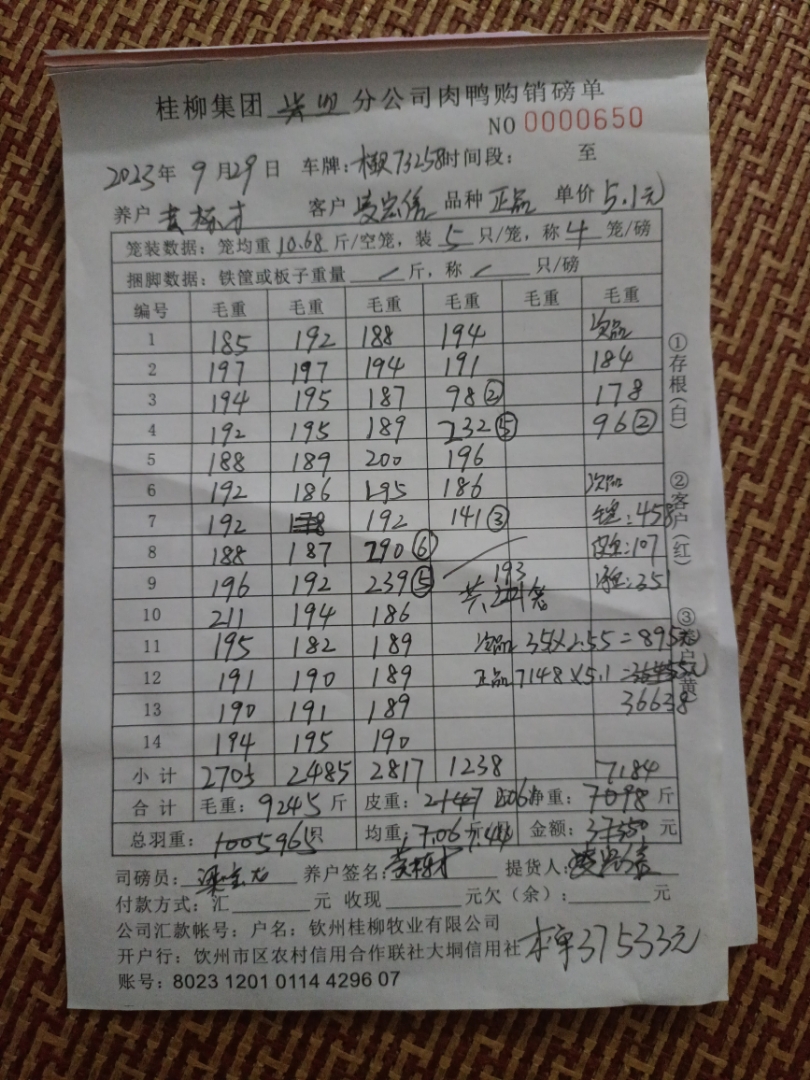 桂柳集团 分公司肉鸭购销磅单
NO 0000650
2023年 9月29日 车牌: 73258 时间段: 至
养户 客户 品种 正品 单价 5.1元
笼装数据: 笼均重 10.68 斤/空笼, 装 5 只/笼, 称 4 笼/磅
捆脚数据: 铁筐或板子重量 / 斤, 称 / 只/磅
编号 毛重 毛重 毛重 毛重 毛重 毛重
1 185 192 188 194 次品
2 197 197 194 191 184
3 194 195 187 98② 178
4 192 195 189 232⑤ 96②
5 188 189 200 196
6 192 186 195 186 次品
7 192 178 192 141③ :458
8 188 187 290⑥ 皮重:107
9 196 192 239⑤ 193 净重:351
10 211 194 186 共 笼
11 195 182 189 次品 351×2.55=895元
12 191 190 189 正品 7148×5.1=
13 190 191 189 36638
14 194 195 190
小计 2703 2485 2817 1238 7184
合计 毛重: 9245 斤 皮重: 2147 净重: 7098 斤
总羽重: 1005 965 只 均重: 7.06 7.44 金额: 元
司磅员: 养户签名: 提货人:
付款方式: 汇 元 收现 元欠(余): 元
公司汇款帐号: 户名: 钦州桂柳牧业有限公司
开户行: 钦州市区农村信用合作联社大垌信用社
本单37533元
账号: 8023 1201 0114 4296 07
①存根(白)
②客户(红)
③养户(黄)